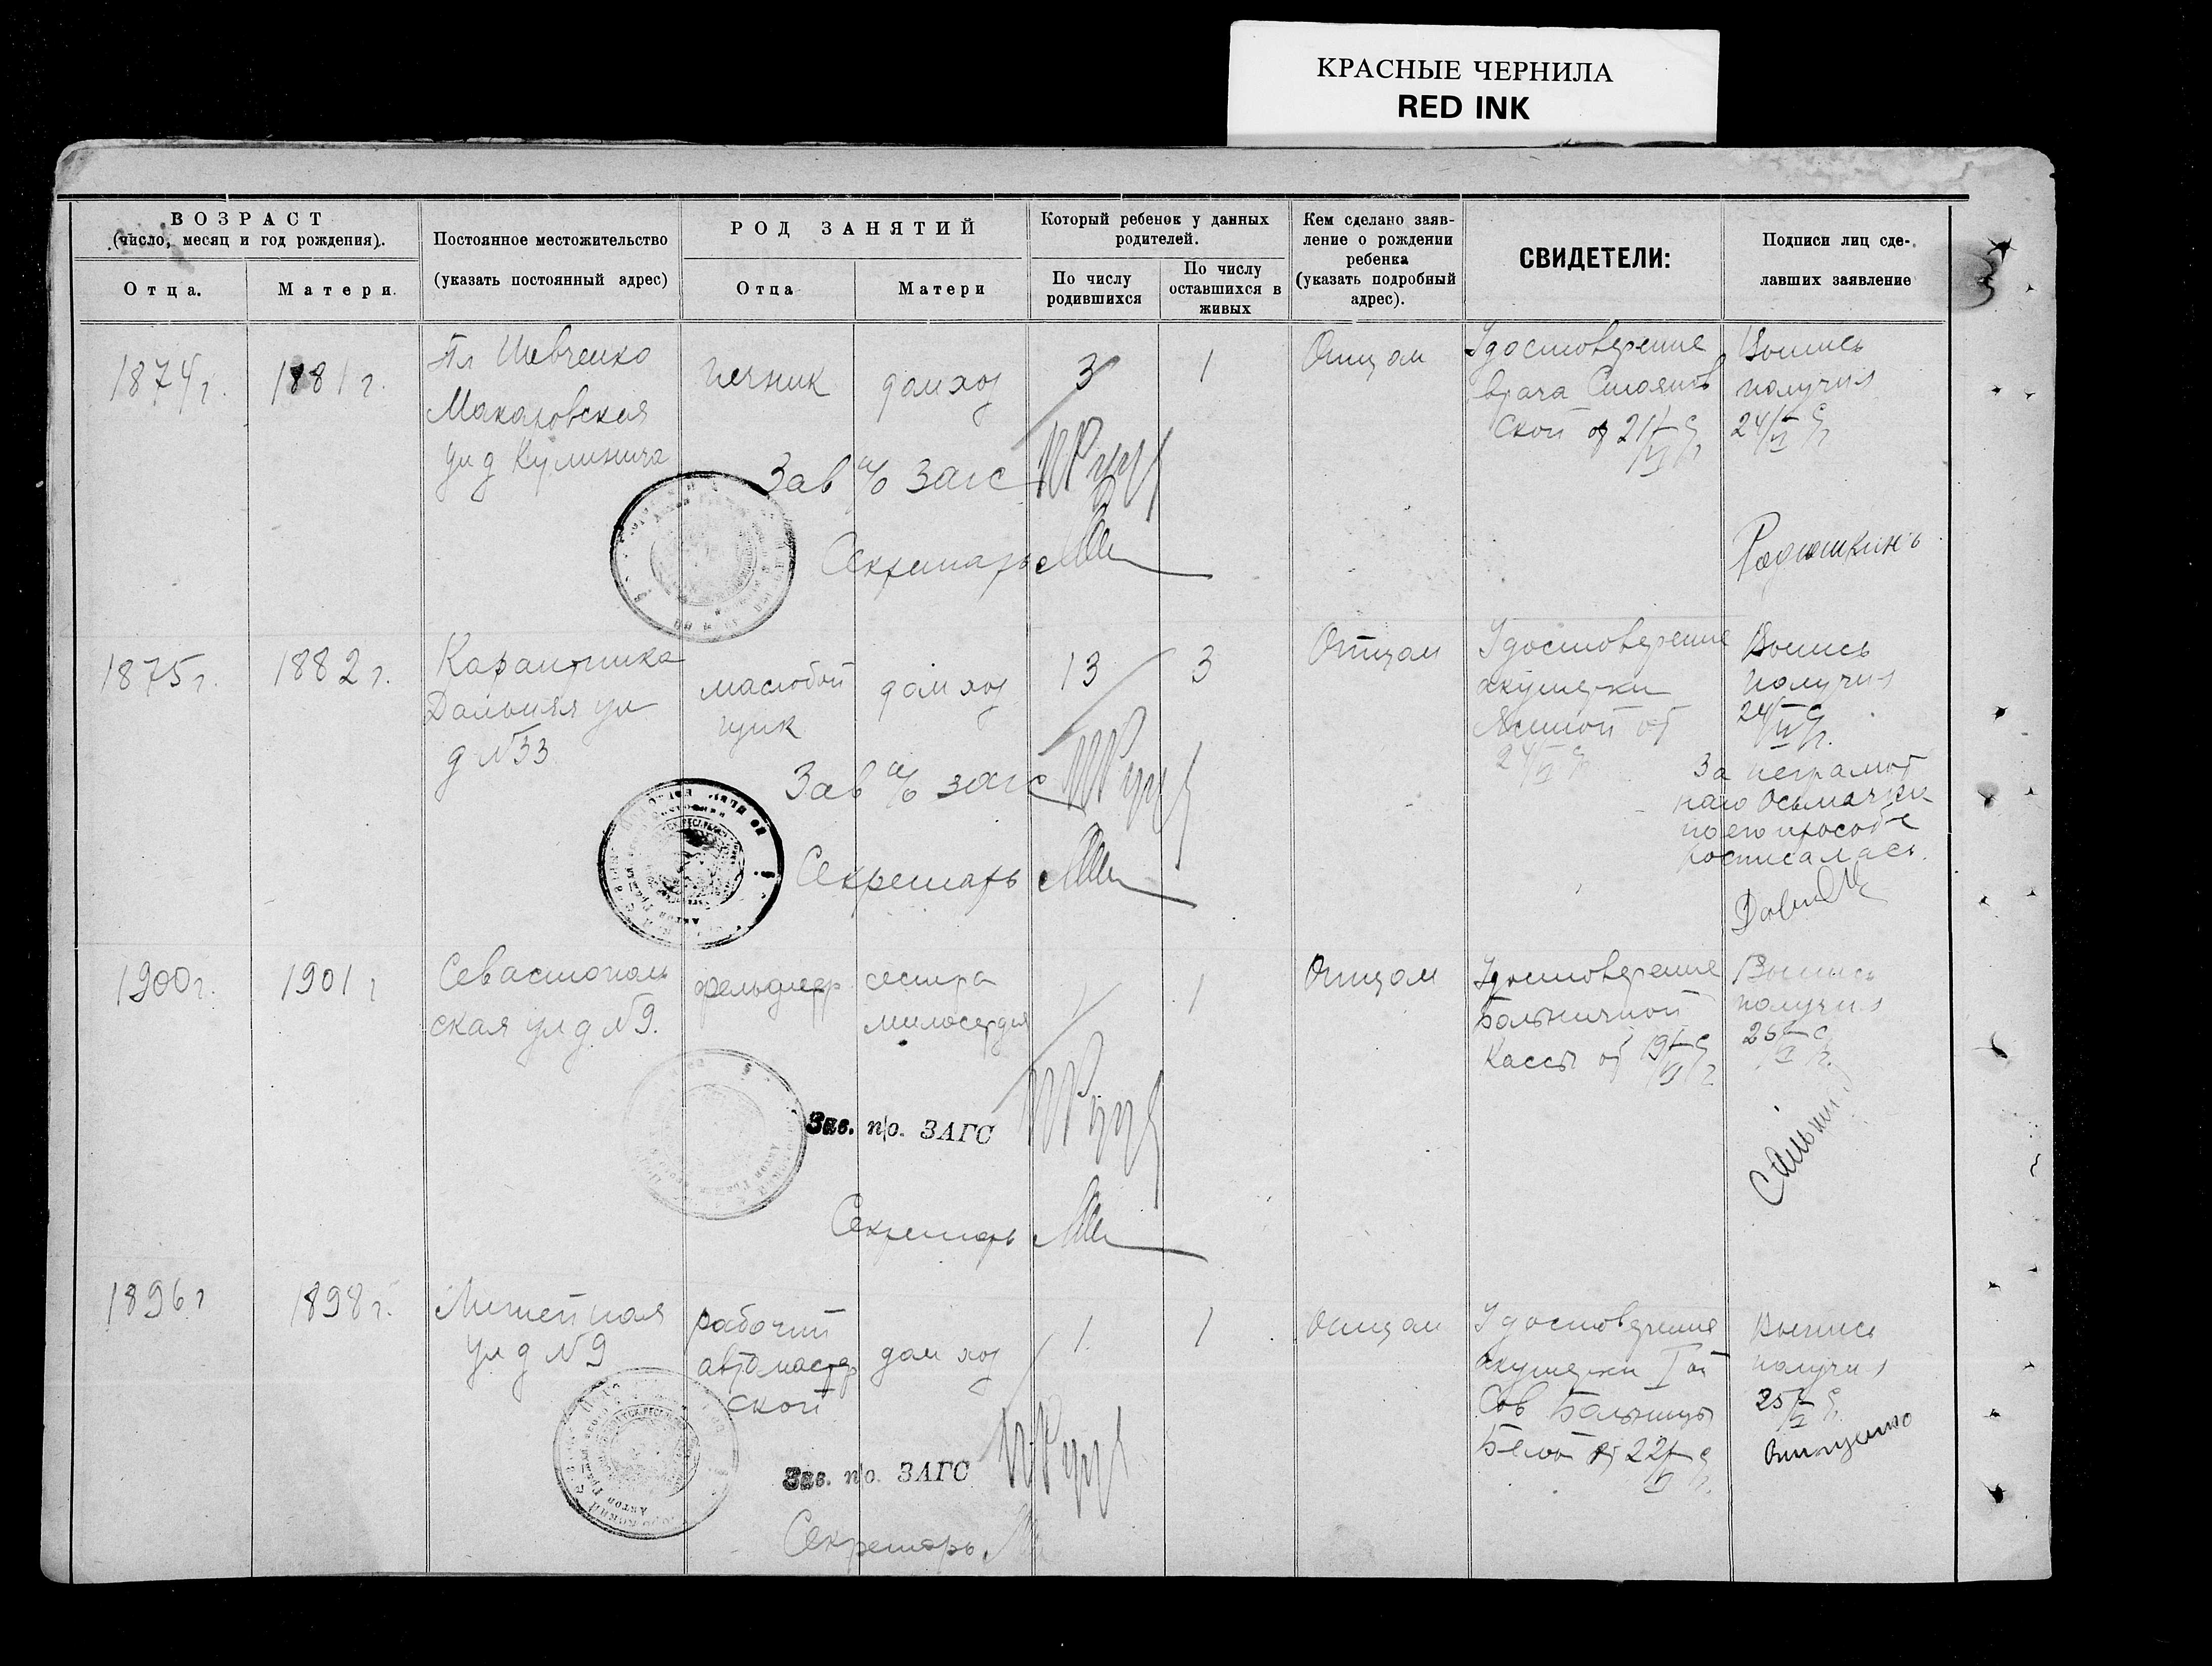 КРАСНЫЕ ЧЕРНИЛА
RED INK
ВОЗРАСТ
(число, месяц и год рождения).
Отца.
Матери.
Постоянное местожительство
(указать постоянный адрес)
РОД ЗАНЯТИЙ
Отца
Матери
Который ребенок у данных
родителей.
По числу
родившихся
По числу
оставшихся в
живых
Кем сделано заяв-
ление о рождении
ребенка
(указать подробный
адрес).
СВИДЕТЕЛИ:
Подписи лиц сде-
лавших заявление
1874 г.
1881 г.
Пл Шевченко
Макаровская
ул д Кулинича
печник
дом хоз
3
1
Отцом
Удостоверение
врача Стоянов
ской от 21/VI
Выпись
получил
24/VI
Зав п/о Загс
Секретарь
Родюшкинъ
1875 г.
1882 г.
Карантинка
Дальняя ул
д №33
маслобой
щик
дом хоз
13
3
Отцом
Удостоверение
акушерки
от
24/VI
Выпись
получил
24/VI
За неграмот
наго
по его просьбе
росписалась
Зав п/о загс
Секретарь
1900 г.
1901 г
Севастополь
ская ул д №9.
фельдшер
сестра
милосердия
1
1
Отцом
Удостоверение
Больничной
Кассы от 19/VI
Выпись
получил
25/VI
Зав. п/о. ЗАГС
Секретарь
1896 г
1898 г.
Литейная
ул д №9
рабочий
автомастер
ской
дом хоз
1
1
Отцом
Удостоверение
акушерки I ой
Сов Больницы
Белой от 22/VI
Выпись
получил
25/VI
Зав. п/о. ЗАГС
Секретарь